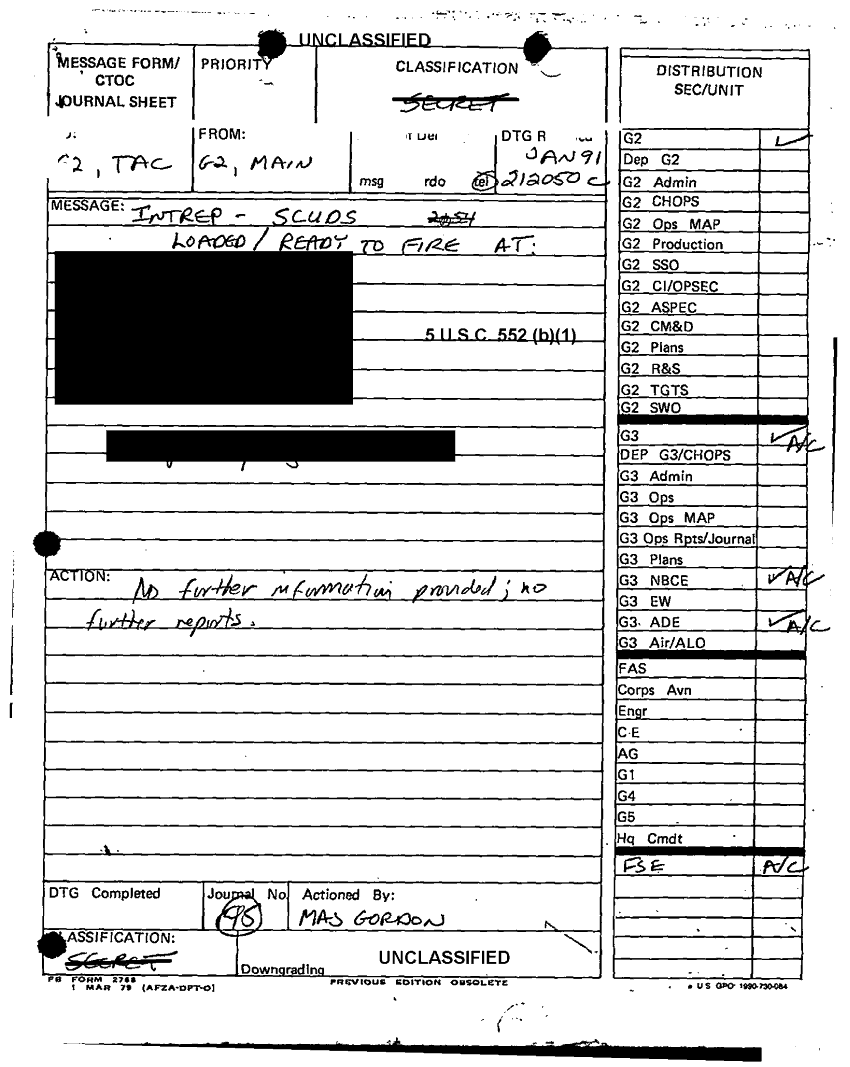 UNCLASSIFIED
MESSAGE FORM/
CTOC
JOURNAL SHEET
PRIORITY
CLASSIFICATION
SECRET
FROM:
DTG R
2, TAC
G2, MAIN
JAN 91
msg rdo tel 212050 C
MESSAGE: INTREP - SCUDS
LOADED / READY TO FIRE AT:
5 U.S.C. 552 (b)(1)
ACTION: No further information provided; no
further reports.
DTG Completed
Journal No.
95
Actioned By:
MAJ GORDON
CLASSIFICATION:
SECRET
Downgrading
UNCLASSIFIED
FB FORM 2768
1 MAR 79 (AFZA-DPT-O)
PREVIOUS EDITION OBSOLETE
DISTRIBUTION
SEC/UNIT
G2 ✓
Dep G2
G2 Admin
G2 CHOPS
G2 Ops MAP
G2 Production
G2 SSO
G2 CI/OPSEC
G2 ASPEC
G2 CM&D
G2 Plans
G2 R&S
G2 TGTS
G2 SWO
G3 ✓ A/C
DEP G3/CHOPS
G3 Admin
G3 Ops
G3 Ops MAP
G3 Ops Rpts/Journal
G3 Plans
G3 NBCE ✓ A/C
G3 EW
G3 ADE ✓ A/C
G3 Air/ALO
FAS
Corps Avn
Engr
C-E
AG
G1
G4
G5
Hq Cmdt
FSE A/C
U S GPO 1990-730-084